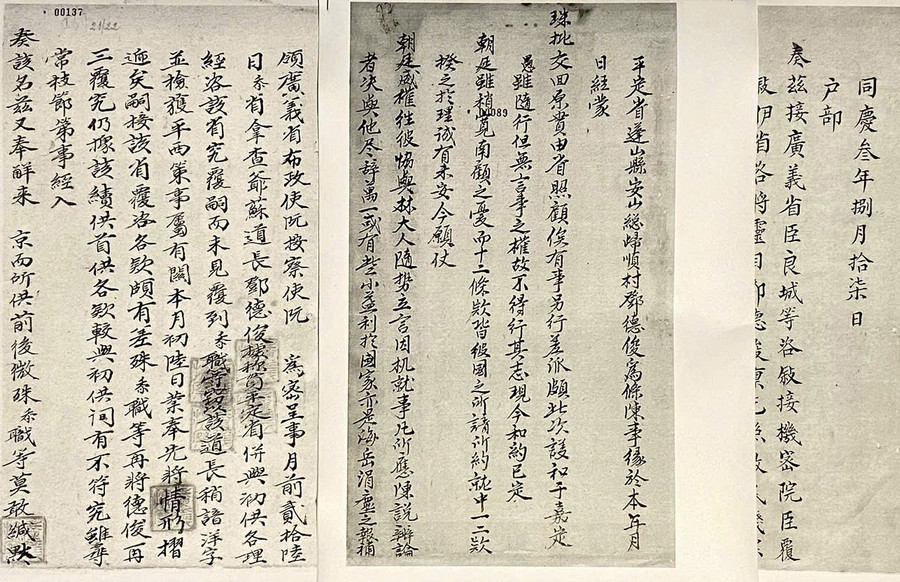 同慶叁年捌月拾柒日
户部
奏茲接廣義省臣良城等咨敘接機密院臣覆
伊省咨將靈目
089
平定省蓬山縣安山総歸順村鄧德俊為條陳事緣於本年月
日經蒙
珠批交田原費由省照顧俟有事另行差派頗此次議和于嘉定
愚雖隨行但無言事之權故不得行其志現今和約已定
朝廷雖稍寬南顧之憂而十二條欵皆彼國之所請所約就中一二欵
揆之於理誠有未安今願仗
朝廷威權往彼惕與林大人隨势立言因机就事凡所應陳説辨論
者决與他尽辞萬一或有些小益利於國家亦是海岳涓塵之報補
00137
21/22
領廣義省布政使阮按察使阮 為密呈事月前貳拾陸
日系省拿查爺蘇道長鄧德俊平定省併與初供各理
經咨該省究覆嗣而未見覆到系職等該道長稍諳洋字
並檢獲平西策事屬有關本月初陸日業奉先將情形摺
遞矣嗣接該省覆咨各欵頗有差殊系職等再將德俊再
三覆究仍據該續供首供各欵較與初供词有不符究雖尋
常枝節第事經入
奏該名茲又奉觧來 京而所供前後微殊系職等莫敢緘默